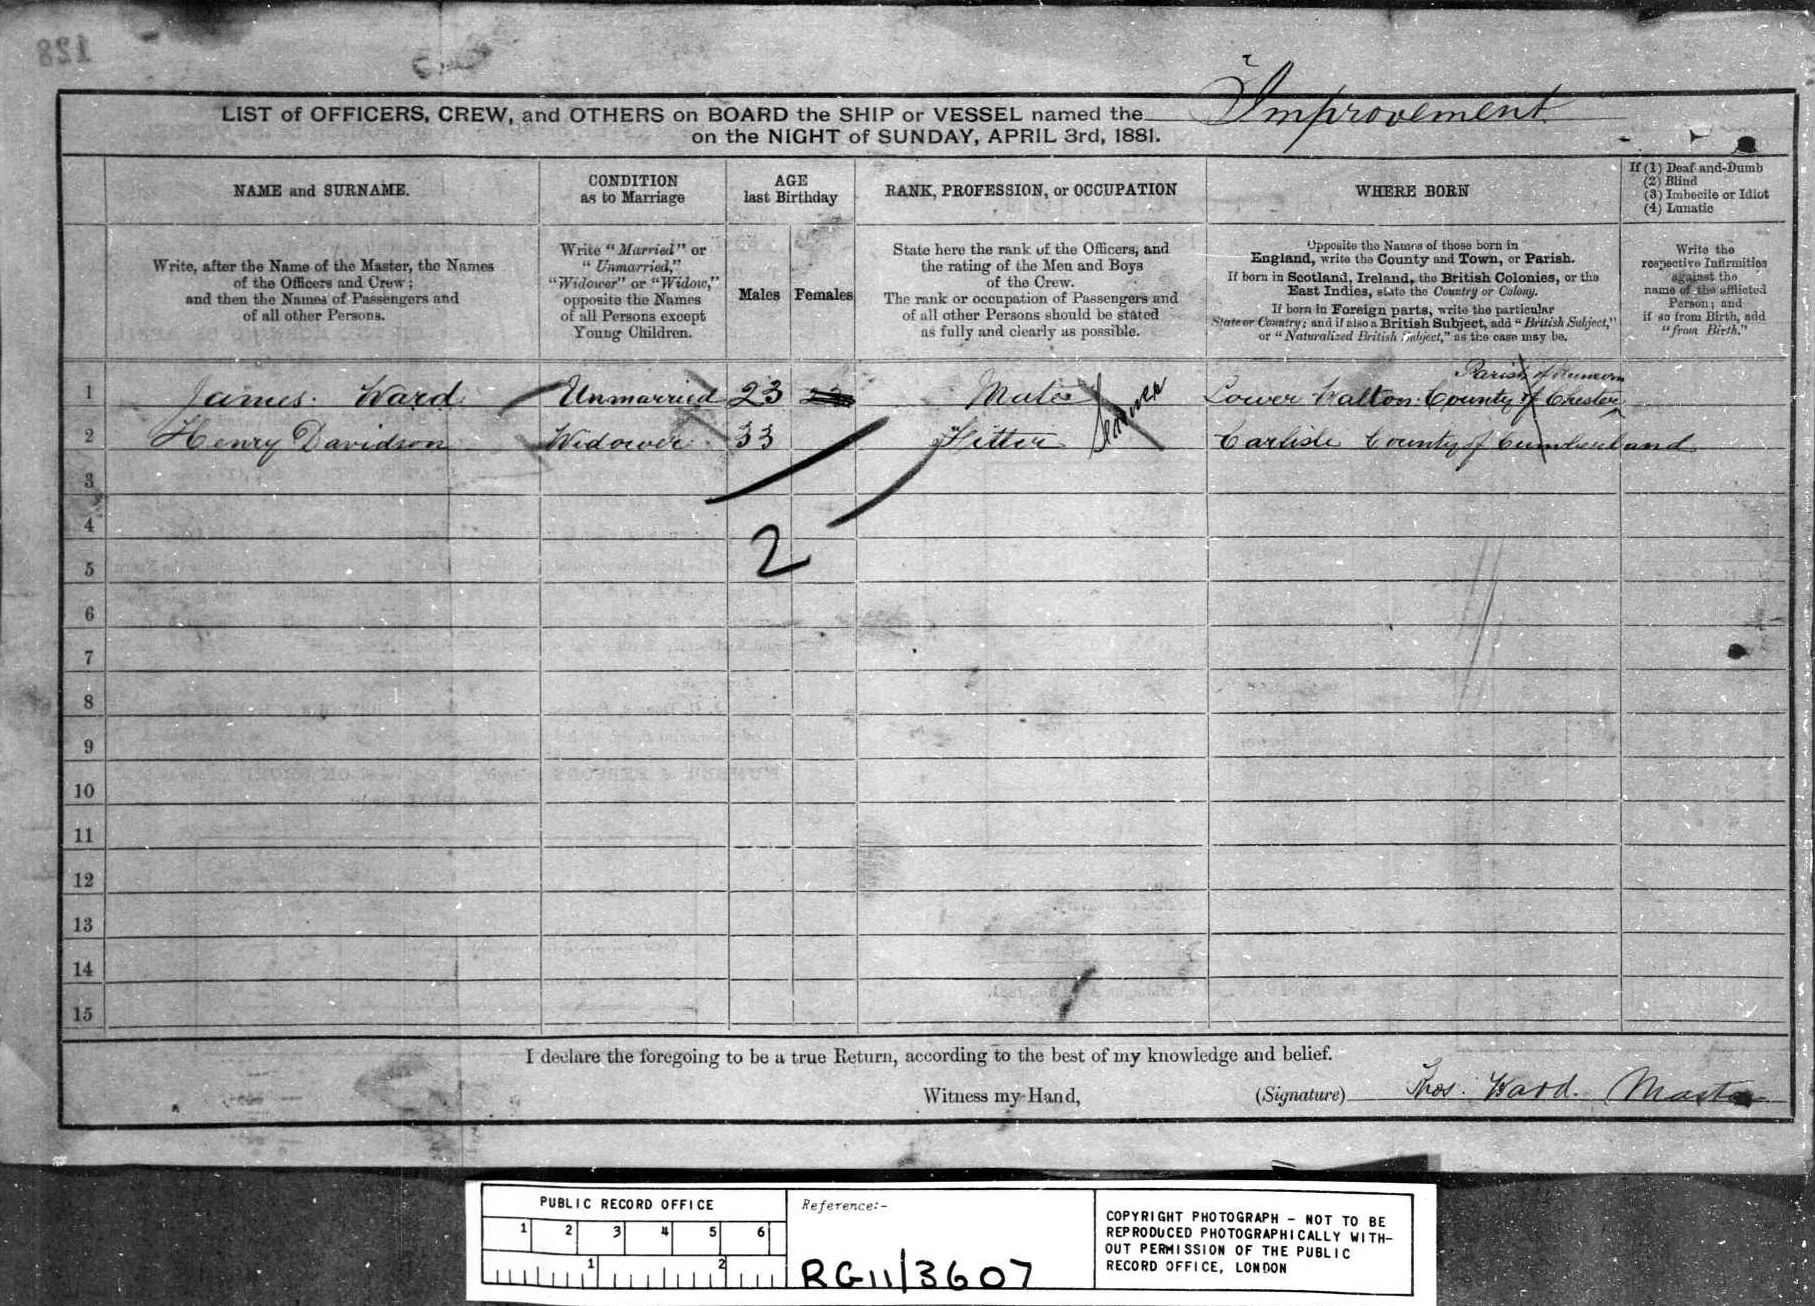 128
LIST of OFFICERS, CREW, and OTHERS on BOARD the SHIP or VESSEL named the Improvement
on the NIGHT of SUNDAY, APRIL 3rd, 1881.
NAME and SURNAME.
CONDITION
as to Marriage
AGE
last Birthday
RANK, PROFESSION, or OCCUPATION
WHERE BORN
If (1) Deaf-and-Dumb
(2) Blind
(3) Imbecile or Idiot
(4) Lunatic
Write, after the Name of the Master, the Names
of the Officers and Crew;
and then the Names of Passengers and
of all other Persons.
Write "Married" or
"Unmarried,"
"Widower" or "Widow,"
opposite the Names
of all Persons except
Young Children.
Males
Females
State here the rank of the Officers, and
the rating of the Men and Boys
of the Crew.
The rank or occupation of Passengers and
of all other Persons should be stated
as fully and clearly as possible.
Opposite the Names of those born in
England, write the County and Town, or Parish.
If born in Scotland, Ireland, the British Colonies, or the
East Indies, state the Country or Colony.
If born in Foreign parts, write the particular
State or Country; and if also a British Subject, add "British Subject,"
or "Naturalized British Subject," as the case may be.
Write the
respective Infirmities
against the
name of the afflicted
Person; and
if so from Birth, add
"from Birth."
Parish of Runcorn
1 James Ward Unmarried 23 Mate Lower Walton County of Chester
2 Henry Davidson Widower 33 Fitter Carlisle County of Cumberland
3
4
2
5
6
7
8
9
10
11
12
13
14
15
I declare the foregoing to be a true Return, according to the best of my knowledge and belief.
Witness my Hand, (Signature) Thos. Ward. Master
PUBLIC RECORD OFFICE
1 2 3 4 5 6
1 2
Reference:-
RG11/3607
COPYRIGHT PHOTOGRAPH - NOT TO BE
REPRODUCED PHOTOGRAPHICALLY WITH-
OUT PERMISSION OF THE PUBLIC
RECORD OFFICE, LONDON